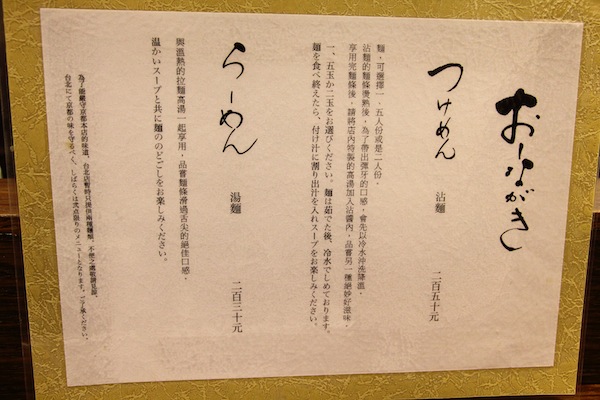 おしながき
つけめん 沾麵 二百五十元
麵，可選擇一．五人份或是二人份，
沾麵的麵條燙熟後，為了帶出彈牙的口感，會先以冷水沖洗降溫，
享用完麵條後，請將店內特製的高湯加入沾醬內，品嘗另一種絕妙好滋味，
一、五玉か二玉をお選びください。麺は茹でた後、冷水でしめております。
麺を食べ終えたら、付け汁に割り出汁を入れスープをお楽しみください。
らーめん 湯麵 二百三十元
與溫熱的拉麵高湯一起享用，品嘗麵條滑過舌尖的絕佳口感，
温かいスープと共に麺ののどごしをお楽しみください。
為了能嚴守京都本店的味道，台北店暫時只提供兩種麵類，不便之處敬請見諒，
台北にて京都の味を守るべく、しばらくは弐点限りのメニューとなります。ご了承くださいませ。